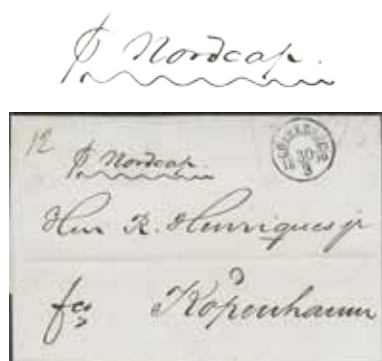 p Nordcap.
12
p Nordcap.
30
Herr R. Henriques jr
fco Köpenhamn